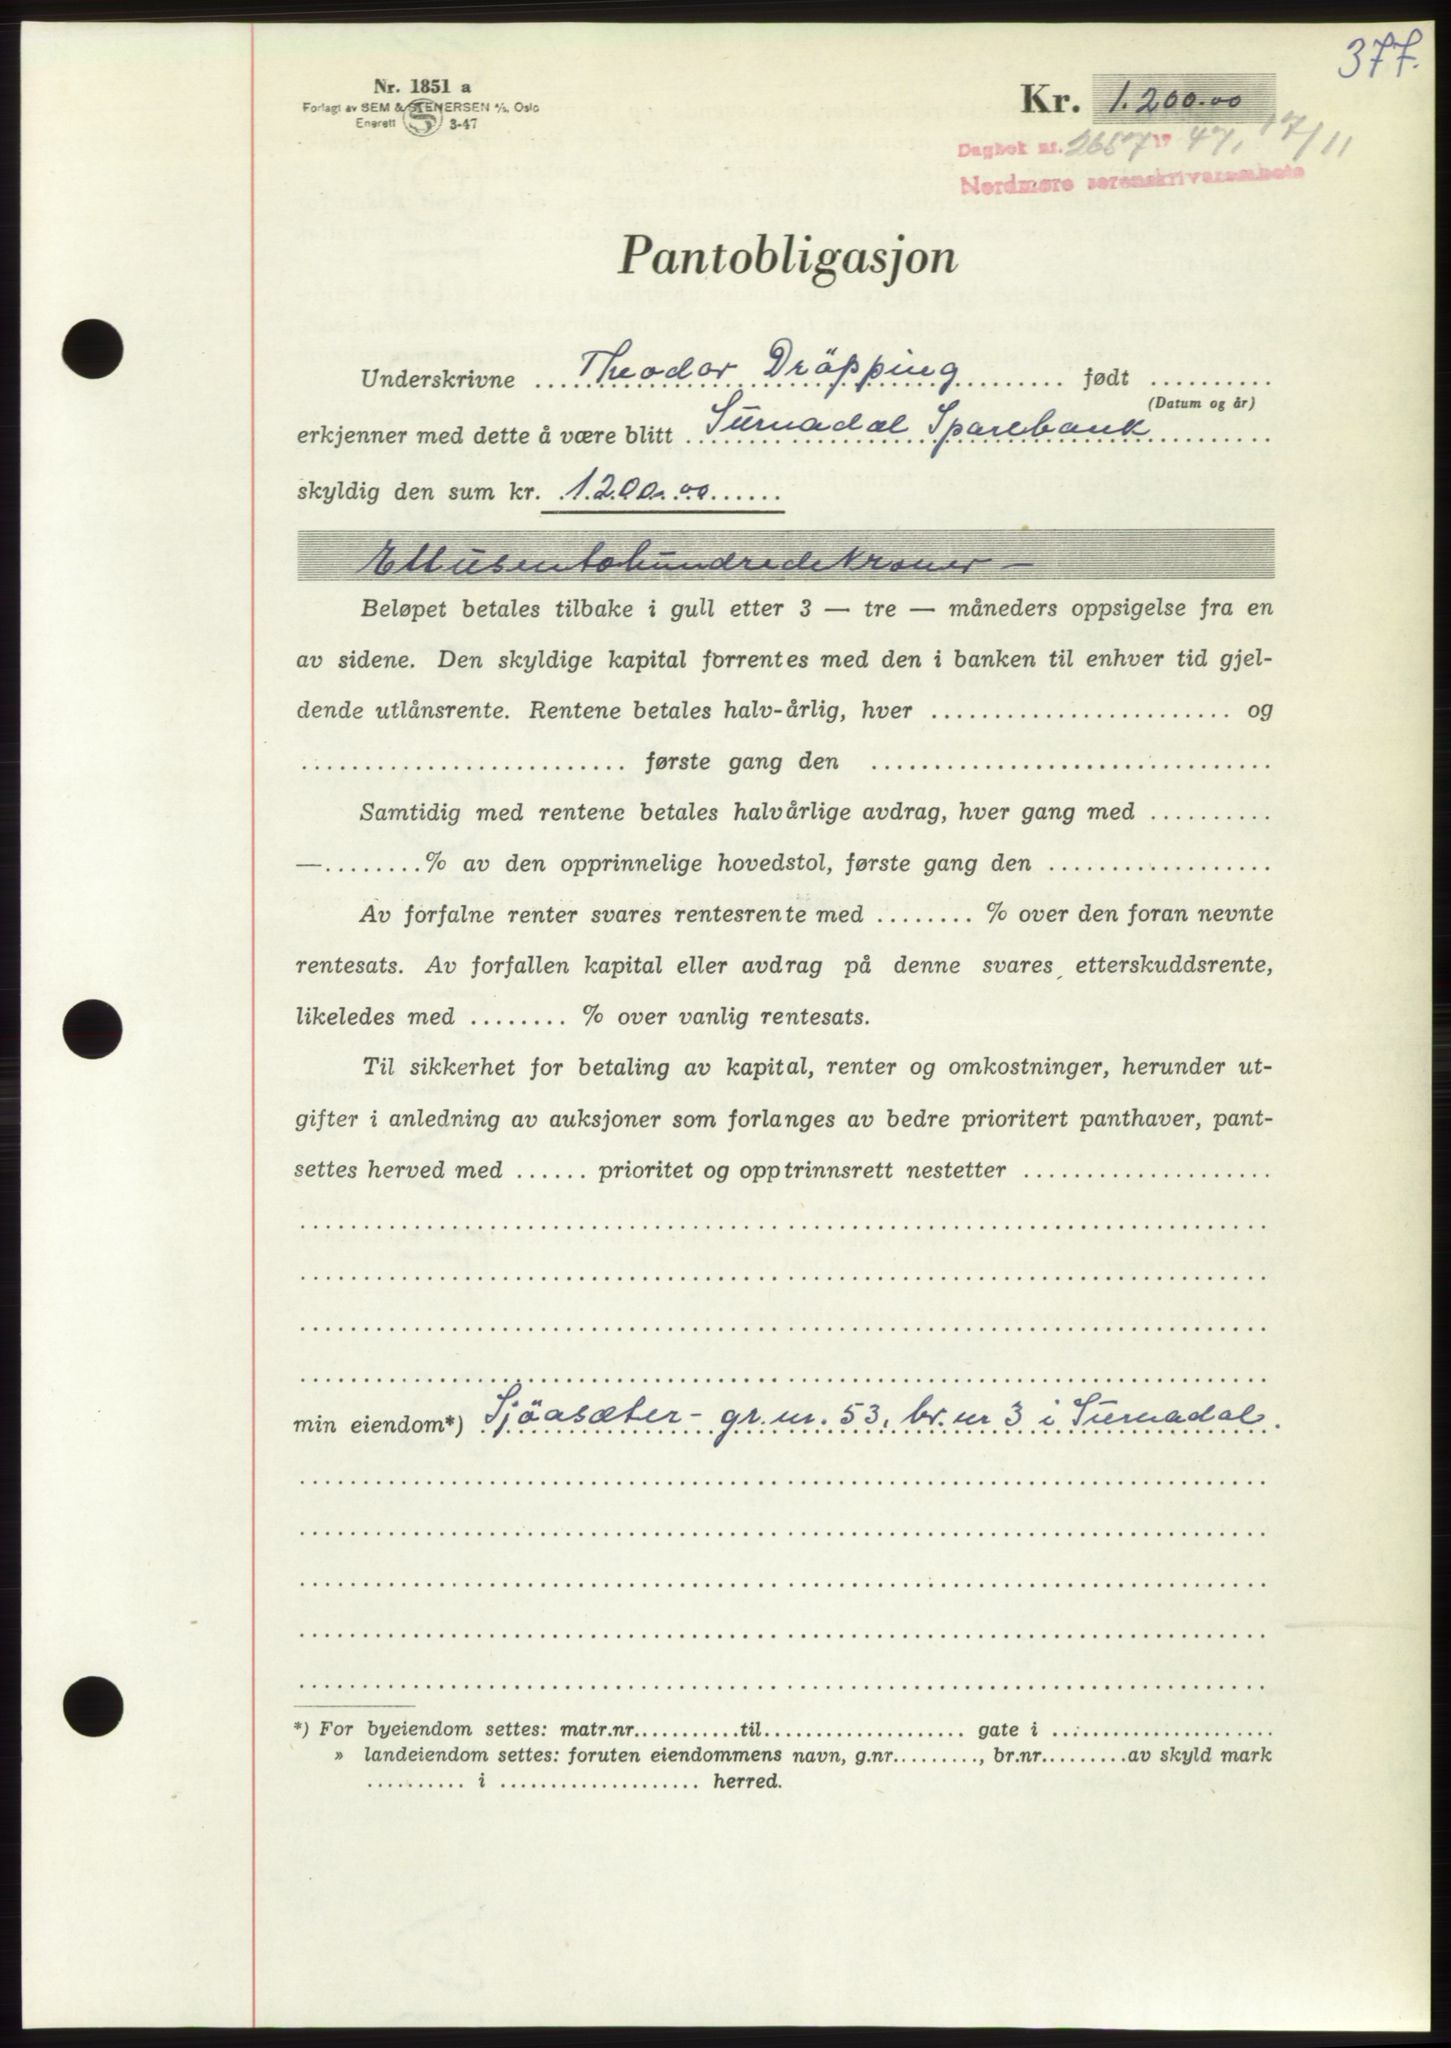 377.
Nr. 1851 a
Forlagt av SEM & STENERSEN A/S, Oslo
Enerett 3-47
Kr. 1.200.00
Dagbok nr. 2657 19 47, 17/11
Nordmøre sorenskriverembete
Pantobligasjon
Underskrivne Theodor Dröpping født ..........
(Datum og år)
erkjenner med dette å være blitt Surnadal Sparebank
skyldig den sum kr. 1.200.00
Ettusentohundredekroner —
Beløpet betales tilbake i gull etter 3 — tre — måneders oppsigelse fra en
av sidene. Den skyldige kapital forrentes med den i banken til enhver tid gjel-
dende utlånsrente. Rentene betales halv-årlig, hver .......... og
.......... første gang den ..........
Samtidig med rentene betales halvårlige avdrag, hver gang med ..........
—.........% av den opprinnelige hovedstol, første gang den ..........
Av forfalne renter svares rentesrente med ........ % over den foran nevnte
rentesats. Av forfallen kapital eller avdrag på denne svares etterskuddsrente,
likeledes med ........ % over vanlig rentesats.
Til sikkerhet for betaling av kapital, renter og omkostninger, herunder ut-
gifter i anledning av auksjoner som forlanges av bedre prioritert panthaver, pant-
settes herved med ...... prioritet og opptrinnsrett nestetter ..........
min eiendom*) Sjöasæter - gr. nr. 53, br. nr 3 i Surnadal.
*) For byeiendom settes: matr.nr..........til.......... gate i ..........
» landeiendom settes: foruten eiendommens navn, g.nr.........., br.nr..........av skyld mark
.......... i .......... herred.